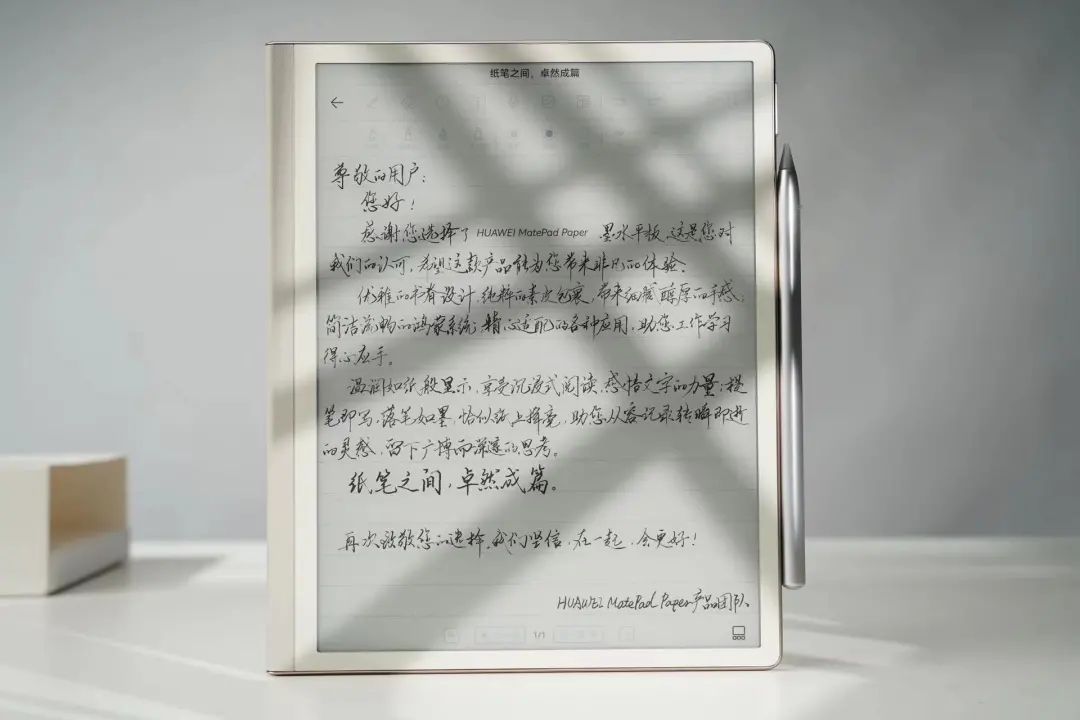 纸笔之间，卓然成篇
尊敬的用户：
您好！
感谢您选择了 HUAWEI MatePad Paper 墨水平板，这是您对
我们的认可，希望这款产品能为您带来非凡的体验。
优雅的书脊设计，纯粹的素皮包裹，带来细腻醇厚的手感；
简洁流畅的鸿蒙系统，精心适配的各种应用，助您工作学习
得心应手。
温润如纸般显示，享受沉浸式阅读，感悟文字的力量；提
笔即写，落笔如墨，恰似纸上挥毫，助您从容记录转瞬即逝
的灵感，留下广博而深邃的思考。
纸笔之间，卓然成篇。
再次致敬您的选择，我们坚信，在一起，会更好！
HUAWEI MatePad Paper产品团队
1/1